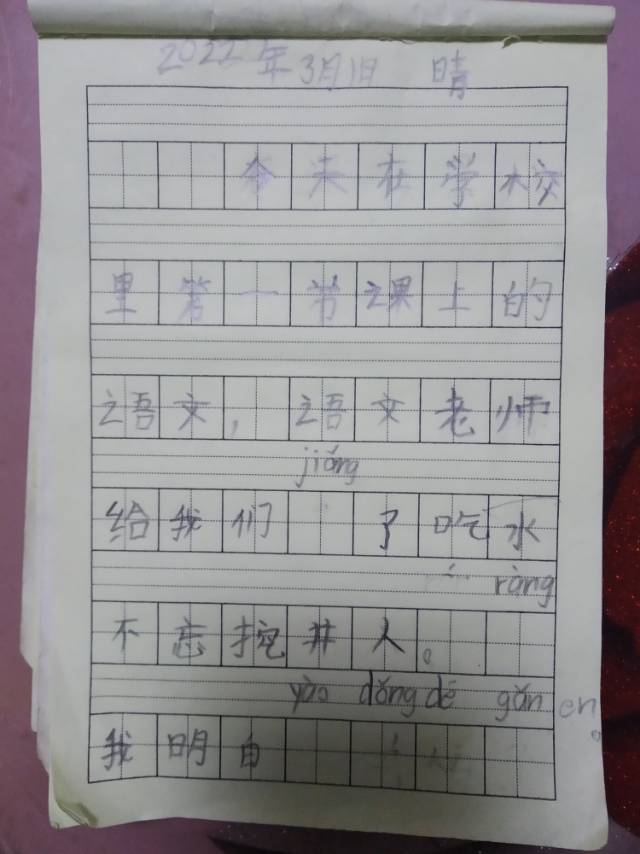 2022年3月1日 晴
今天在学校
里第一节课上的
语文，语文老师
jiǎng
给我们 了吃水
ràng
不忘挖井人。
yào dǒng dé gǎn en。
我明白